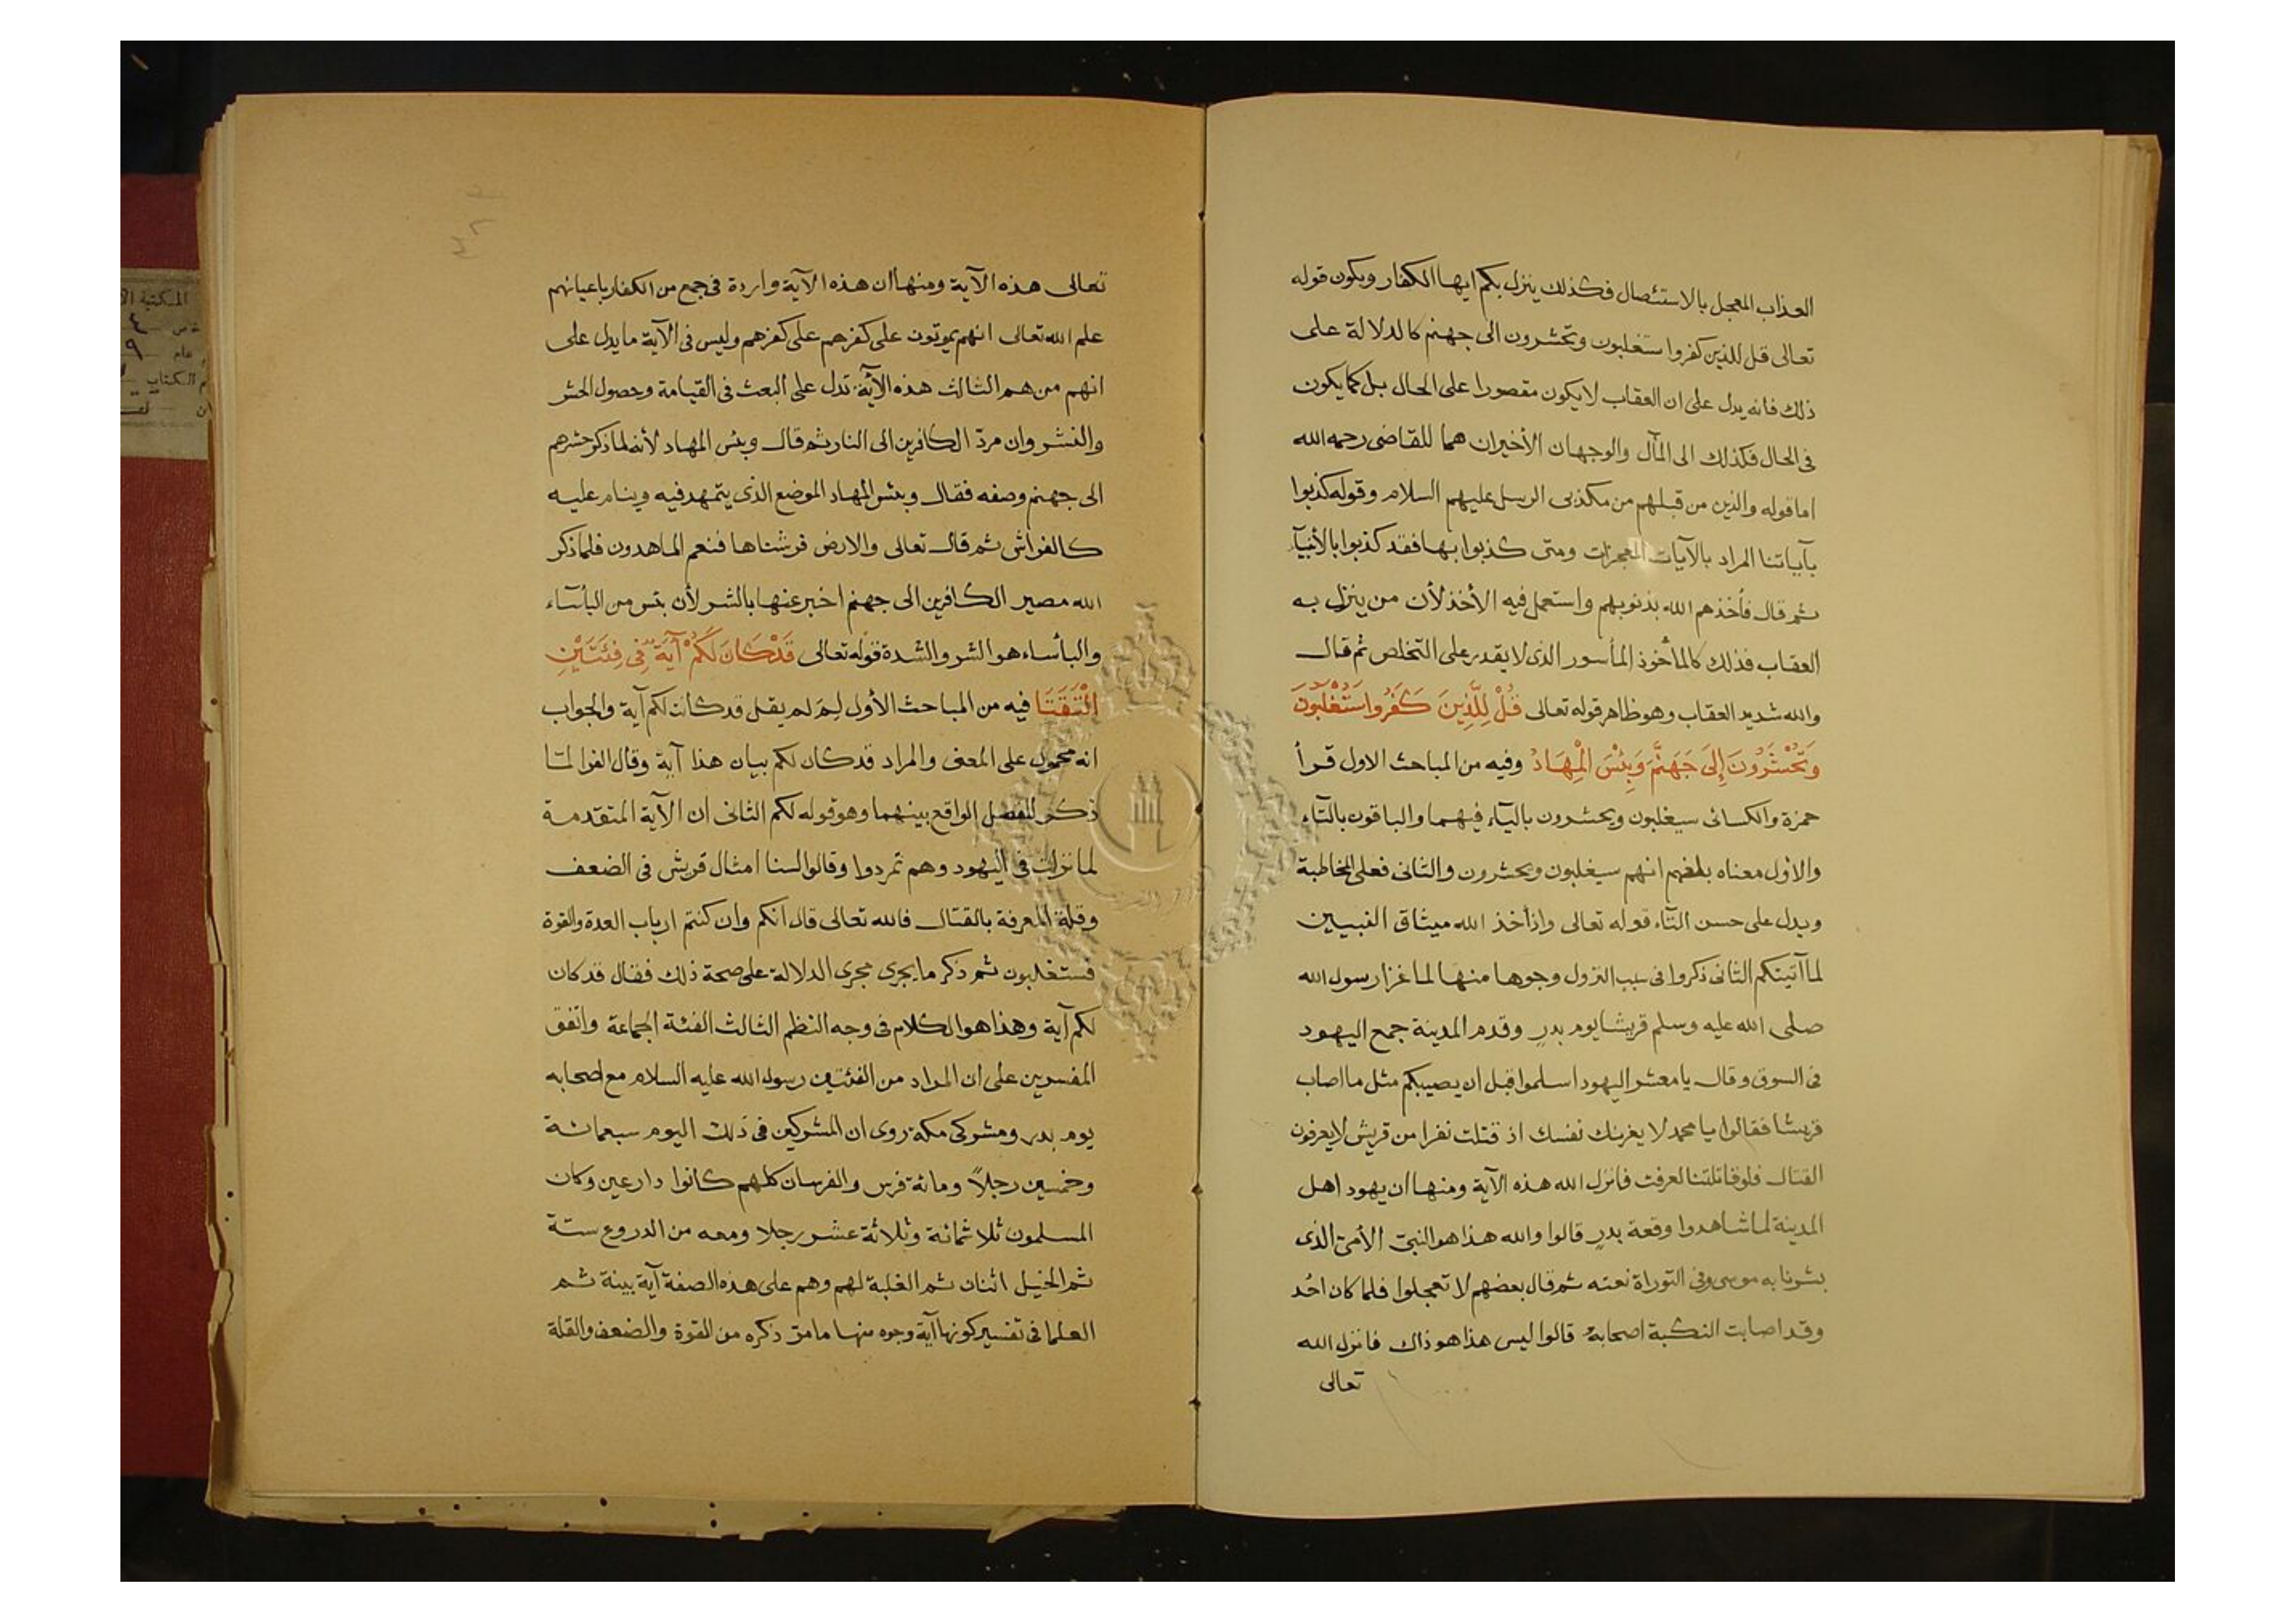 العذاب المعجل بالاستئصال فكذلك ينزل بكم ايها الكفار ويكون قوله
تعالى قل للذين كفروا ستغلبون وتحشرون الى جهنم كالدلالة على
ذلك فانه يدل على ان العقاب لا يكون مقصورا على الحال بل كما يكون
فى الحال فكذلك الى المآل والوجهان الأخيران هما للقاضى رحمه الله
اما قوله والذين من قبلهم من مكذبى الرسل عليهم السلام وقوله كذبوا
بآياتنا المراد بالآيات المعجزات ومتى كذبوا بها فقد كذبوا بالأنبيآء
ثم قال فأخذهم الله بذنوبهم واستعمل فيه الأخذ لأن من ينزل به
العقاب فذلك كالمأخوذ المأسور الذى لا يقدر على التخلص ثم قال
والله شديد العقاب وهو ظاهر قوله تعالى قُلْ لِلَّذِينَ كَفَرُوا سَتُغْلَبُونَ
وَتُحْشَرُونَ إِلَى جَهَنَّمَ وَبِئْسَ الْمِهَادُ وفيه من المباحث الاول قرأ
حمزة والكسائى سيغلبون ويحشرون باليآء فيهما والباقون بالتآء
والاول معناه بلغهم انهم سيغلبون ويحشرون والثانى فعلى المخاطبة
ويدل على حسن التآء قوله تعالى واذ أخذ الله ميثاق النبيين
لما آتيتكم الثانى ذكروا فى سبب النزول وجوها منها لما غزا رسول الله
صلى الله عليه وسلم قريشا يوم بدرٍ وقدم المدينة جمع اليهود
فى السوق وقال يا معشر اليهود اسلموا قبل ان يصيبكم مثل ما اصاب
قريشا فقالوا يا محمد لا يغرنك نفسك اذ قتلت نفرا من قريش لا يعرفون
القتال فلو قاتلتنا لعرفت فانزل الله هذه الآية ومنها ان يهود اهل
المدينة لما شاهدوا وقعة بدرٍ قالوا والله هذا هو النبىّ الأمىّ الذى
بشرنا به موسى وفى التوراة نعته ثم قال بعضهم لا تعجلوا فلما كان احُد
وقد اصابت النكبة اصحابهُ قالوا ليس هذا هو ذاك فانزل الله
تعالى
تعالى هذه الآية ومنها ان هذه الآية واردة فى جمع من الكفار باعيانهم
علم الله تعالى انهم يموتون على كفرهم على كفرهم وليس فى الآية ما يدل على
انهم من هم الثالث هذه الآية تدل على البعث فى القيامة وحصول الحشر
والنشر وان مردّ الكافرين الى النار ثم قال وبئس المهاد لأنه لما ذكر حشرهم
الى جهنم وصفه فقال وبئس المهاد الموضع الذى يتمهد فيه وينام عليه
كالفراش ثم قال تعالى والارض فرشناها فنعم الماهدون فلما ذكر
الله مصير الكافرين الى جهنم اخبر عنها بالشر لأن بئس من البأسآء
والبأساء هو الشر والشدة قوله تعالى قَدْ كَانَ لَكُمْ آيَةٌ فِى فِئَتَيْنِ
الْتَقَتَا فيه من المباحث الأول لِمَ لم يقل قد كانت لكم آية والجواب
انه محمول على المعنى والمراد قد كان لكم بيان هذا آية وقال الفرا لمّا
ذكر للفصل الواقع بينهما وهو قوله لكم الثانى ان الآية المتقدمة
لما نزلت فى اليهود وهم تمردوا وقالوا لسنا امثال قريش فى الضعف
وقلة المعرفة بالقتال فالله تعالى قال انكم وان كنتم ارباب العدة والقوة
فستغلبون ثم ذكر ما يجرى مجرى الدلالة على صحة ذلك فقال قد كان
لكم آية وهذا هو الكلام فى وجه النظم الثالث الفئة الجماعة واتفق
المفسرين على ان المراد من الفئتين رسول الله عليه السلام مع اصحابه
يوم بدر ومشركى مكة روى ان المشركين فى ذلك اليوم سبعمائة
وخمسين رجلاً ومائة فرس والفرسان كلهم كانوا دارعين وكان
المسلمون ثلاثمائة وثلاثة عشر رجلا ومعه من الدروع ستة
ثم الخيل اثنان ثم الغلبة لهم وهم على هذه الصفة آية بينة ثم
العلما فى تفسير كونها آية وجوه منها ما مرّ ذكره من القوة والضعف والقلة